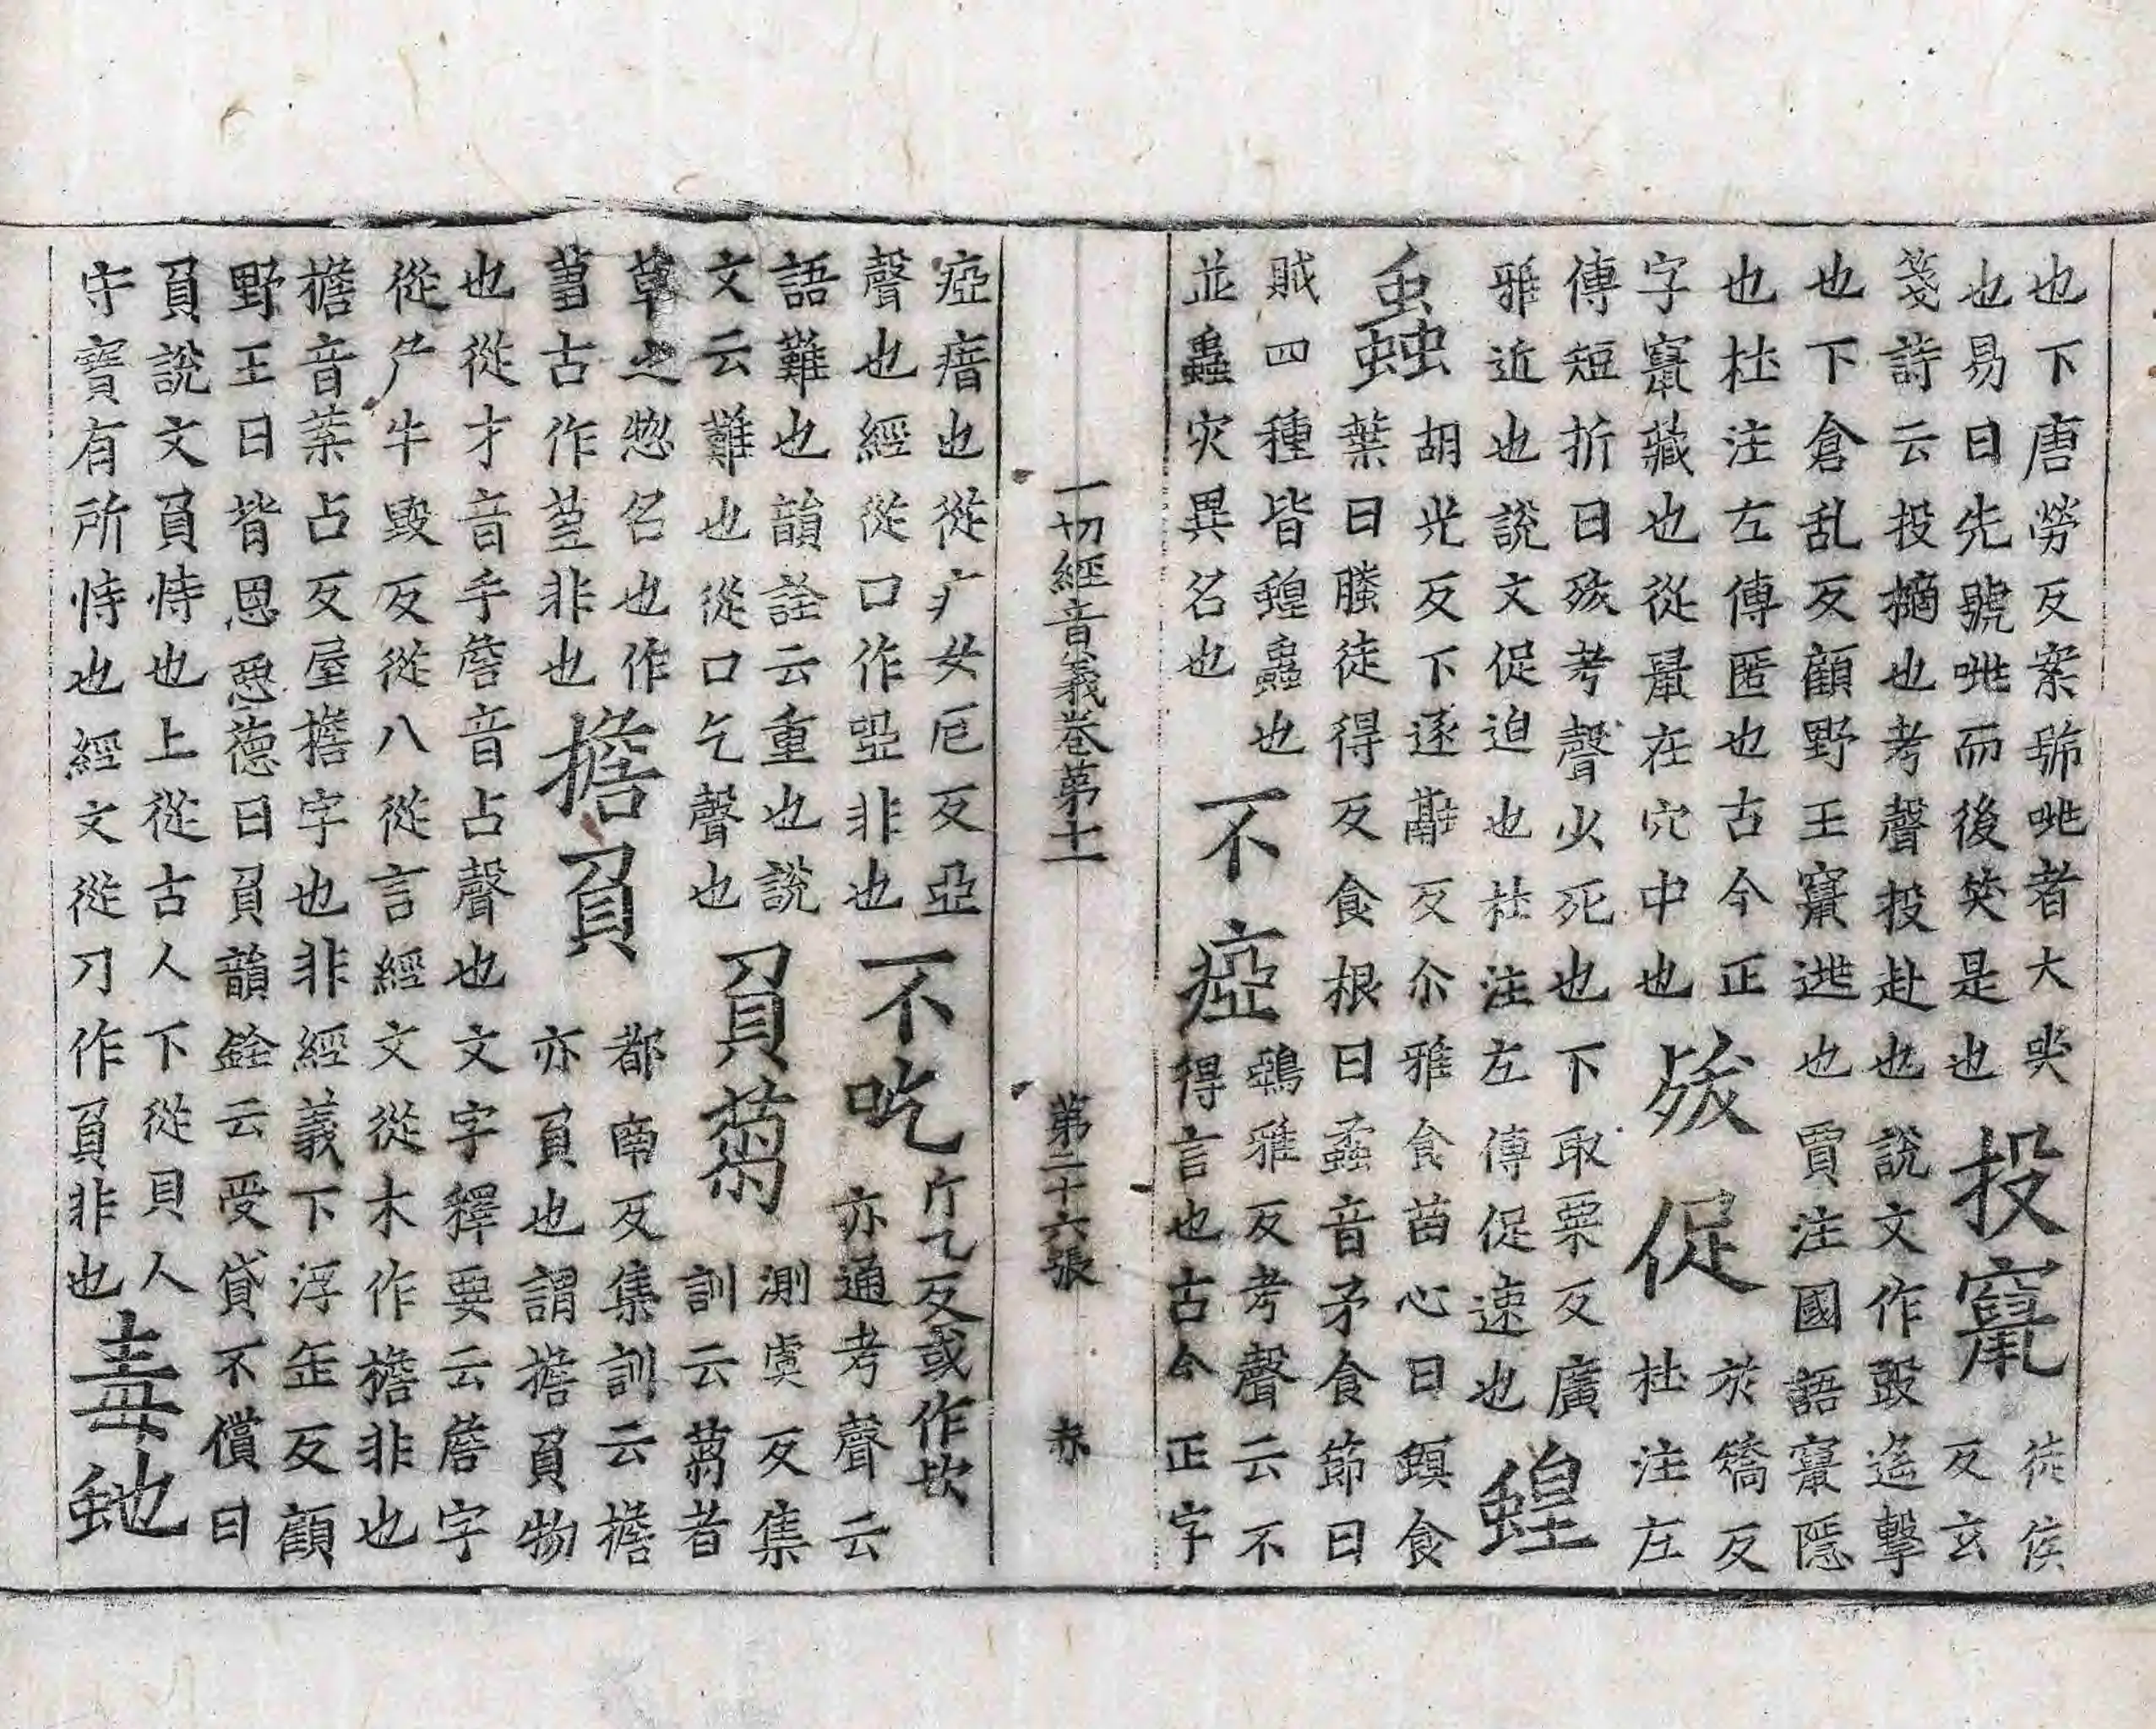 也下唐勞反案號咷者大哭
也易曰先號咷而後笑是也投竄徒侯
箋詩云投擿也考聲投赴也說文作毁遙擊反玄
也下倉乱反顧野王竄逃也賈注國語竄隱
也杜注左傳匿也古今正
字竄藏也從鼠在穴中也殀促於矯反
杜注左
傳短折曰殀考聲少死也下取粟反廣
雅近也說文促迫也杜注左傳促速也蝗
蟲胡光反下逐融反尒雅食苗心曰螟食
葉曰螣徒得反食根曰蟊音矛食節曰
賊四種皆蝗蟲也
並蟲灾異名也不瘂鵶雅反考聲云不
得言也古今正字
一切經音義卷第十一 第二十六張 赤
瘂瘖也從疒女厄反亞
聲也經從口作啞非也不吃斤乞反或作欬
亦通考聲云
語難也韻詮云重也說
文云難也從口乞聲也負蒭測虞反集
訓云蒭者
草之惣名也作
蒭古作芻非也擔負都南反集訓云擔
亦負也謂擔負物
也從才音手詹音占聲也文字釋要云詹字
從厃牛毀反從八從言經文從木作檐非也
擔音葉占反屋檐字也非經義下浮缶反顧
野王曰背恩忘德曰負韻銓云受貸不償曰
負說文負恃也上從古人下從貝人
守寶有所恃也經文從刀作負非也毒虵